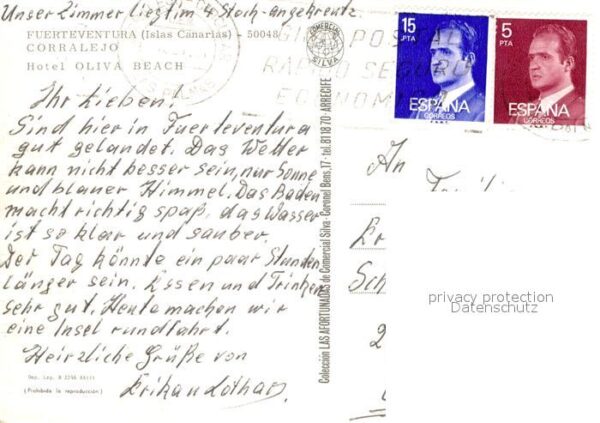 Unser Zimmer liegt im 4 Stock - angekreutz
FUERTEVENTURA (Islas Canarias) - 50048
CORRALEJO
Hotel OLIVA BEACH
Ihr Lieben!
Sind hier in Fuerteventura
gut gelandet. Das Wetter
kann nicht besser sein, nur Sonne
und blauer Himmel. Das Baden
macht richtig spaß, das Wasser
ist so klar und sauber.
Der Tag könnte ein paar Stunden
länger sein. Essen und Trinken
sehr gut. Heute machen wir
eine Insel rundfahrt.
Herzliche Grüße von
Erika u Lothar
Dep. Leg. B
(Prohibida la reproducción)
COMERCIAL
SILVA
Colección LAS AFORTUNADAS de Comercial Silva - Coronel Bens, 17 - tel. 811870 - ARRECIFE
15
PTA
ESPAÑA
CORREOS
5
PTA
ESPAÑA
CORREOS
GIRO POSTAL
RAPIDO SEGURO
ECONOMICO
An
Fr
Sch
2
privacy protection
Datenschutz